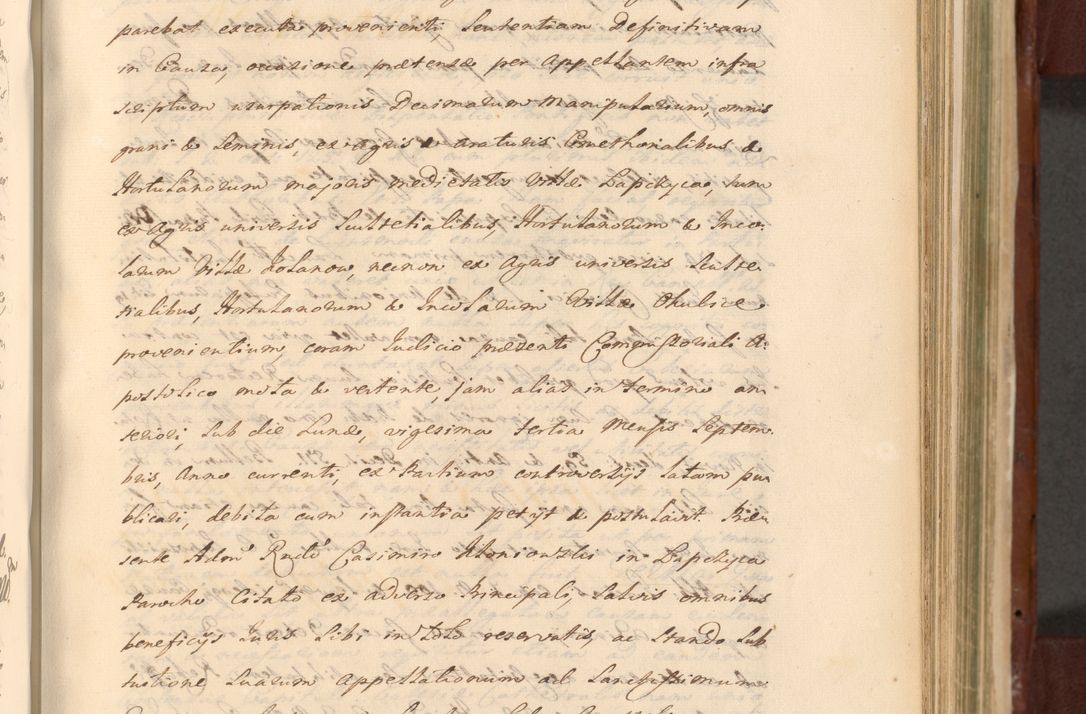 parebat executa provenienti, Sententiam Definitivam
in Causa, occasione prætensæ per Appellantem infra
scriptum usurpationis Decimarum Manipularium, omnis
grani & Seminis, ex agris & araturis Cmethonalibus &
Hortulanorum majoris medietatis Villæ Łapczyca, tum
ex Agris universis Scultetialibus, Hortulanorum & Inco-
larum Villæ Jelanow, necnon ex Agris universis Sculte-
tialibus, Hortulanorum & Incolarum Villæ Chubice
provenientium, coram Judicio præsenti Compustoriali A-
postolico mota & vertente, jam alias in termino an
teriori, sub die Lunæ, vigesima tertia Mensis Septem-
bris, Anno currenti, ex Partium controversijs latam pu
blicari, debita cum instantia petijt & postulavit. Præ-
sente Admo Rndo Casimiro in Łapczyca
Parocho Citato ex adverso Principali, salvis omnibus
beneficijs Juris sibi in toto reservatis, ac stando sub
tuitione suarum Appellationum ad Sanctissimum